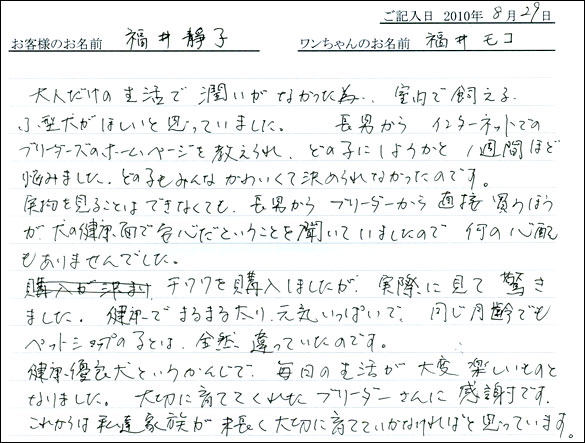 ご記入日 2010年 8月29日
お客様のお名前 福井 靜子 ワンちゃんのお名前 福井 モコ
大人だけの生活で潤いがなかった為、室内で飼える
小型犬がほしいと思っていました。 長男から インターネットでの
ブリーダーズのホームページを教えられ、どの子にしようかと 1週間ほど
悩みました。どの子もみんなかわいくて決められなかったのです。
実物を見ることはできなくても、長男から ブリーダーから 直接 買うほう
が 犬の健康面で安心だということを聞いていましたので 何の心配
もありませんでした。
購入が決まり チワワを購入しましたが、実際に見て 驚き
ました。健康でまるまる太り、元気いっぱいで、同じ月齢でも
ペットショップの子とは、全然 違っていたのです。
健康優良犬というかんじで、毎日の生活が 大変 楽しいものと
なりました。大切に育ててくれた ブリーダーさんに 感謝です。
これからは 私達家族が 末長く大切に育てていかなければと思っています。